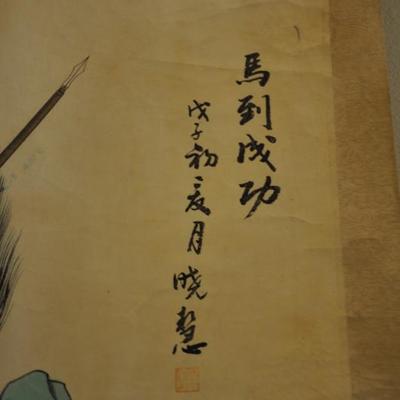 馬到成功
戊子初夏月晓慧